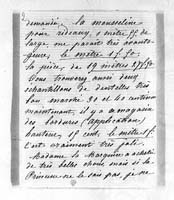 demandé, la mousseline
pour rideaux, 2 mètr. 75 de
large, me paraît très avanta-
geux, le mètre 1f. 50.
la pièce, de 19 mètres 27f. 50
Vous trouverez aussi deux
échantillons de dentelles très
bon marché 30 et 40 centimes
maintenant, il y a au magasin
des bordures (application)
hauteur, 15 cent. le mètre 1f.
C'est vraiment très joli.
Madame la Marquise a acheté
de très belles choses mais si la
Princesse ne le sais pas, je ne